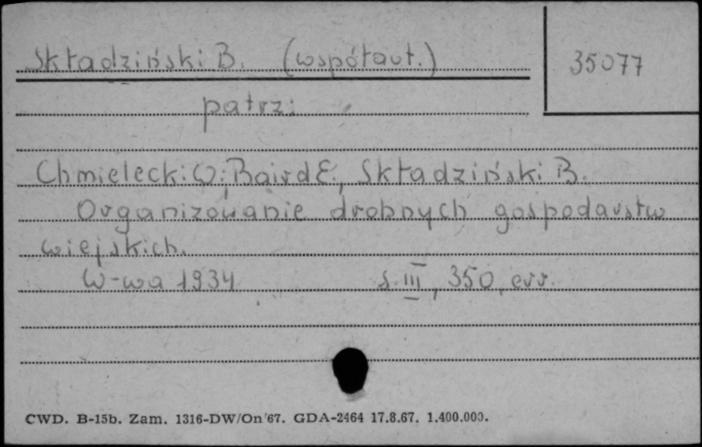 Składziński B. (współaut.)
35077
patrz:
Chmielecki W; Baird E., Składziński B.
Organizowanie drobnych gospodarstw
wiejskich.
W-wa 1934 s. III, 350, err.
CWD. B-15b. Zam. 1316-DW/On/67. GDA-2464 17.8.67. 1.400.000.